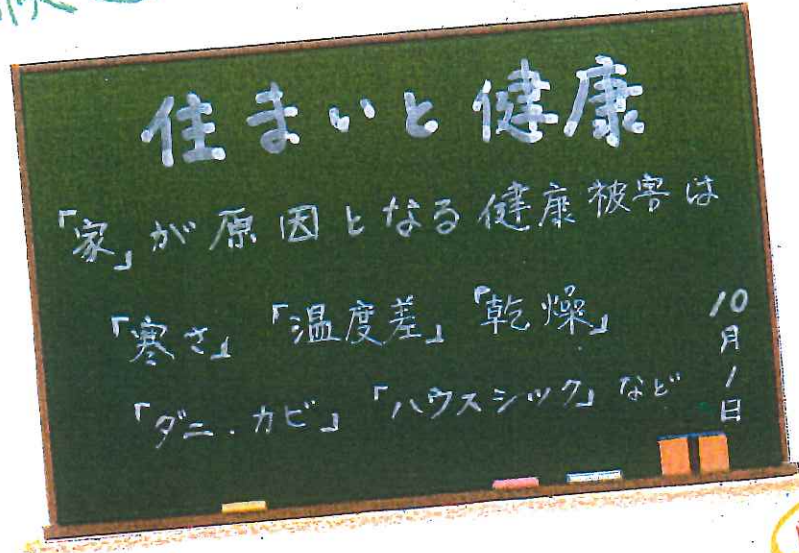 住まいと健康
「家」が原因となる健康被害は
「寒さ」「温度差」「乾燥」
「ダニ．カビ」「ハウスシック」など
10月1日